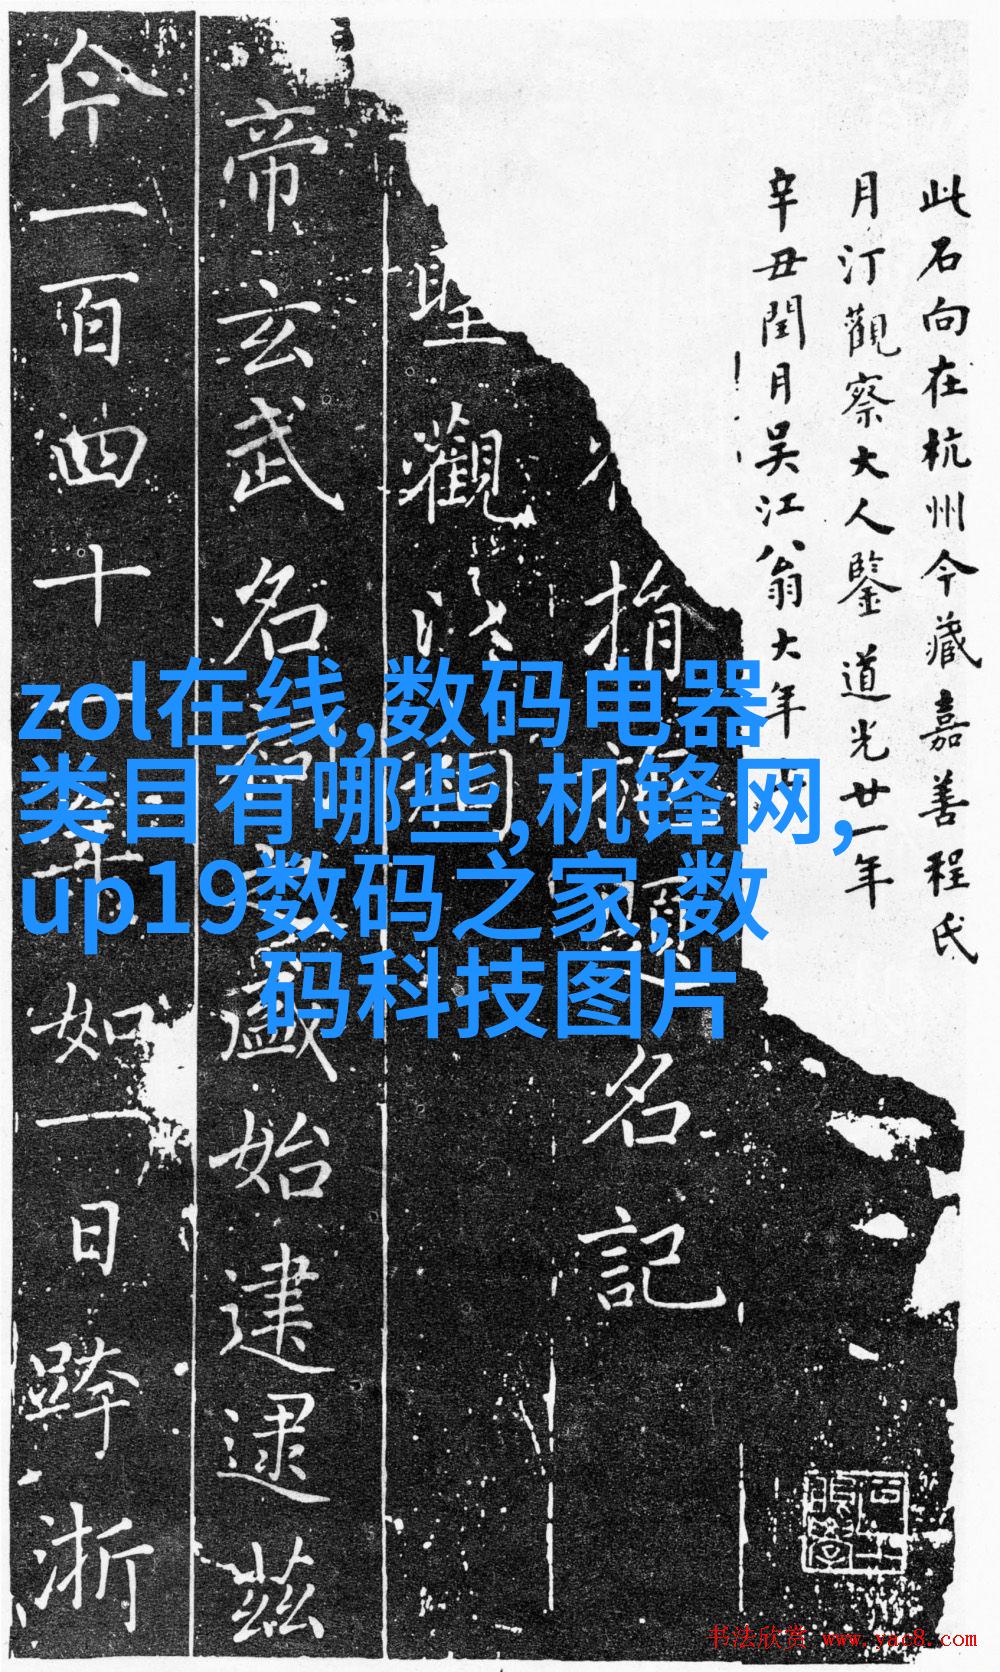 此石向在杭州今藏嘉善程氏
月汀觀察大人鑒道光廿一年
辛丑閏月吳江翁大年
指題名記
聖觀
帝玄武名盛始建逮茲
今一百四十一年如一日跨浙
zol在线,数码电器
类目有哪些,机锋网,
up19数码之家,数
码科技图片
书法欣赏 www.yac8.com